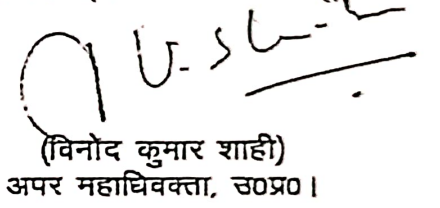 (विनोद कुमार शाही)
अपर महाधिवक्ता, उ०प्र०।